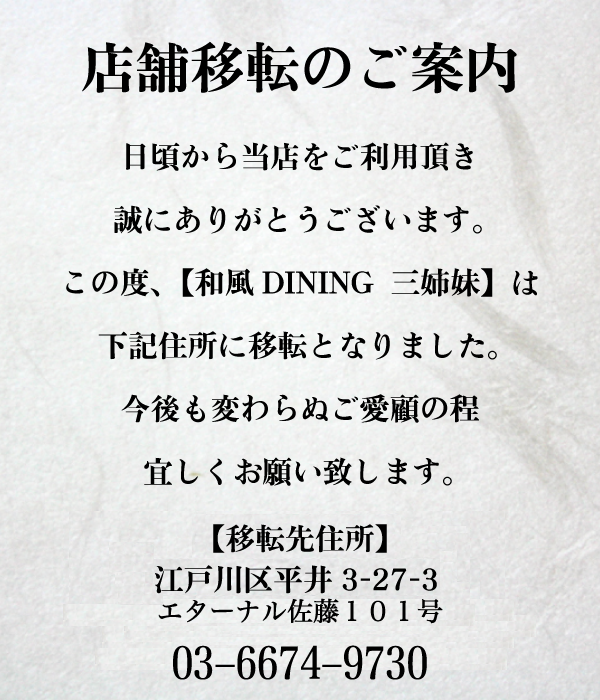 店舗移転のご案内
日頃から当店をご利用頂き
誠にありがとうございます。
この度、【和風 DINING 三姉妹】は
下記住所に移転となりました。
今後も変わらぬご愛顧の程
宜しくお願い致します。
【移転先住所】
江戸川区平井 3-27-3
エターナル佐藤１０１号
03–6674–9730